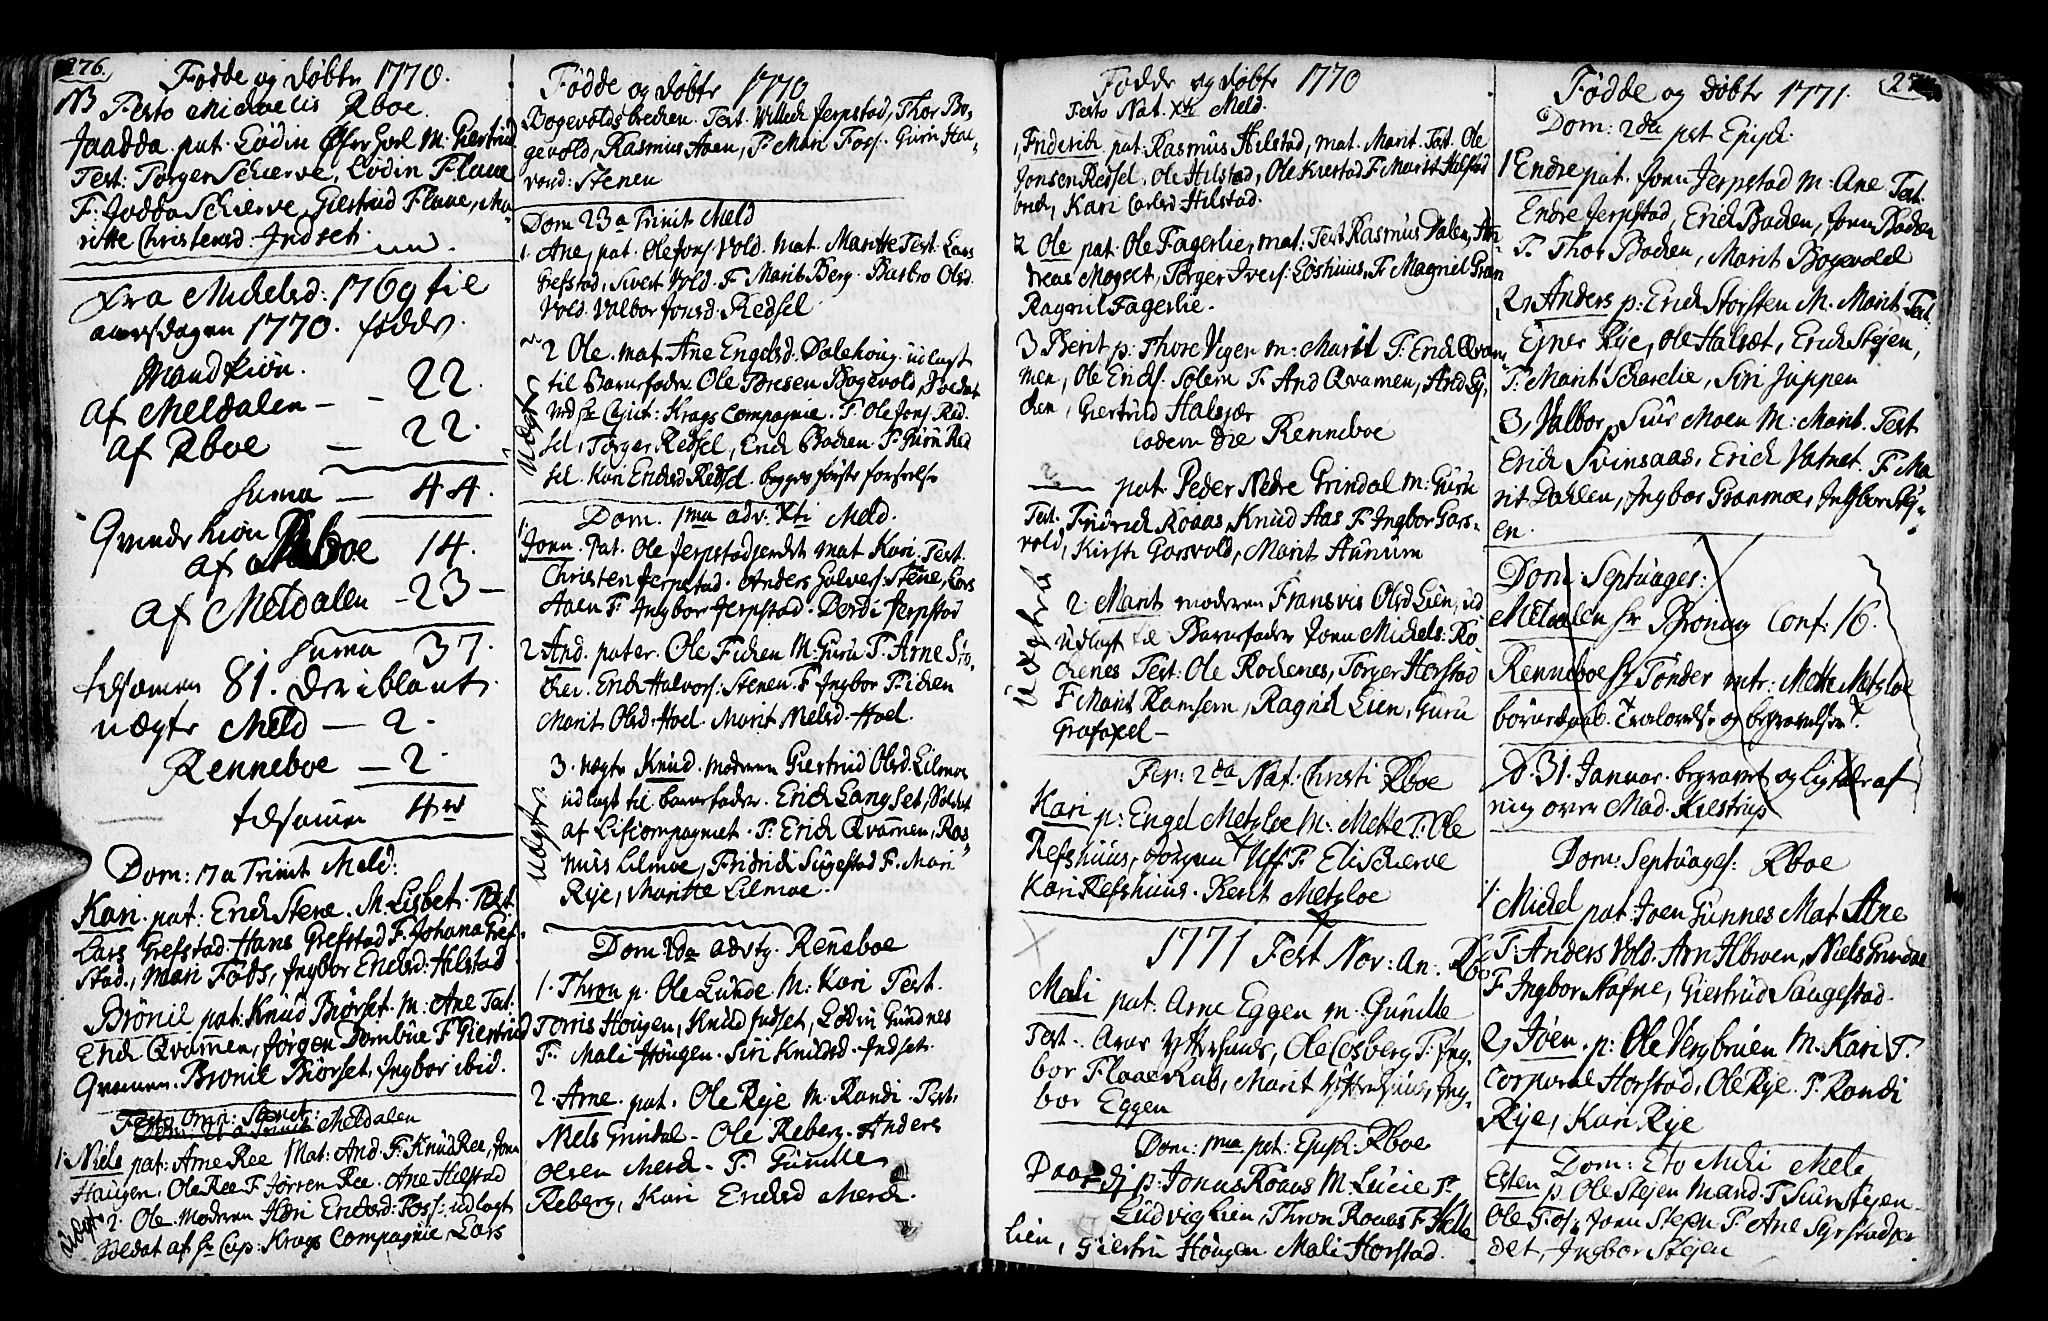 276.
Fødde og døbte 1770.
NB Festo Michaelis Rboe.
Jaadda. pat. Lodin M: Giertrud
Test: Torger Schierve, Lodin Flaae
F: Jodda Schierve, Giertrud Flaae, Ma-
ritte Christensd. Indset.
Fra Mickelsd: 1769 til
aarsdagen 1770. fødde.
Mandkiøn.
Af Meldalen - - 22.
Af Rboe - 22.
Suma - 44.
Qvinde kiøn
af Rboe 14.
Af Meldalen - 23 -
Suma 37.
tilsamen 81. deriblant.
uægte Meld - 2.
Renneboe - 2.
tilsamen 4
Dom: 17 a Trinit Meld:
Kari. pat: Erich Stene. M. Lisbet. Test.
Lars Grefstad. Hans Grefstad F. Johana Gref-
stad, Mari Foss, Ingbor Ericksd: Hilstad
Brönil pat: Knud Biörset. M: Ane Test:
Erich Qvamen, Jörgen Dombue F Giertrud
Qvamen. Brönil Biörset. Ingbor ibid.
Festo Omn: Sanct:
Meldalen
1. Niels pat: Arne Ree Mat: And. F: Knud Ree, Jonn
Haugen. Ole Ree F. Jörren Ree. Ane Hilstad
2. Ole. Moderen Ericksd: Foss: udlagt
Soldat af Hr Cap: Krags Compagnie, Lars
Uægte
Fødde og døbte 1770
Bogevoldsbrechen. Test. Willich Jerpstad, Thor Bo-
gevold, Rasmus Aaen, F. Mari Foss. Guru Hal-
vord: Stenen
Dom 23 a Trinit Meld
1. Ane, pat. Ole Jons. Vold. Mat. Maritte Test. Lars
Grefstad, Sivert Vold. F Marit Berg. Barbro Olsd.
Vold. Valbor Jonsd. Redsel
2 Ole. mat. Ane Engelsd. Dalehoug. udlagt
til Barnefader. Ole Bogevold, Soldat
ved Hr Capit: Krags Compagnie. F. Ole Jons. Red.
sel, Torger Redsel, Erich Bachen F. Guru Red
sel. Kari Ericksd Redsel. begges første forseelse
Uægte
Dom. 1ma adv. Xti Meld.
1. Jonn. Pat. Ole Jerpstadjerdet mat Kari. Test.
Christen Jerpstad. Anders Halvors: Stene, Lars
Aaen F. Ingbor Jerpstad. Dordi Jerpstad
2. And. pater. Ole Fichen M: Guru F. Arne
Erich Halvors: Stenen. F Ingbor Fichen
Marit Olsd. Hoel. Marit Nielsd. Hoel.
3. uægte Knud. moderen Giertrud Olsd. Lilmoe
udlagt til barnefader. Erich Langset, Soldat
af Lifcompagniet. F. Erich Qvamen, Ras-
mus Lilmoe, Fridrich Sugestad F. Mari
Rye, Maritte Lilmoe.
Uægte
Dom 2da advty. Reneboe
1. Thron p. Ole Lunde M: Kari Test.
Torris Hougen, Knud Indset, Lodin Gundnes
F. Mali Hougen. Siri Knudsd. Indset.
2. Arne. pat. Ole Rye M. Randi. Test.
Niels Grindal - Ole Reberg. Anders
Olsen Merch. F. Gunille
Reberg, Kari Ericksd Merch.
Fødde og døbte 1770
Festo Nat. Xti Meld.
1, Friderich pat. Rasmus Hilstad, mat. Marit Test. Ole
Jonsen Redsel. Ole Hilstad, Ole Krestad F Marit Hilstad
brech, Kari Carlsd Hilstad.
2 Ole pat. Ole Fagerlie, mat: Test Rasmus Dalen, An-
dreas Mogset, Torger Ivers: Løshuus, F. Magnil Gran
Ragnil Fagerlie.
3 Berit p: Thore Veger m: Marit F. Erich Qvam
men, Ole Ericks. Solem F. And Qvamen, And Ly-
chen, Giertrud Halsær
eodem die Renneboe
pat. Peder Nedre Grindal m: Guru
Test. Fridrich Roaas, Knud Aas F. Ingbor Gors-
vold, Kirsti Gorsvold, Marit Aunum
2. Marit moderen Fransvis Olsd Lien, ud
udlagt til Barnefader Jonn Michels: Ro-
chenes Test: Ole Rochenes, Torger Horstad
F Marit Ramsem, Ragnil Lien, Guru
Grafaxel -
Uægte
Fer: 2da Nat: Christi Rboe
Kari p: Engel Metzloe M: Mette F: Ole
Refshuus, Jörgen Uff. F. Eli Schierve
Kari Refshuus. Berit Metzloe
1771 Fest Nov: an: Rboe
Mali pat. Arne Eggen m. Gunille
Test. Arne Ytterhuus, Ole Cosberg F. Ing-
bor Flaae Marit Ytterhuus, Ing-
bor Eggen
Dom: 1ma pst: Epiph: Rboe
p: Jonas Roaas M. Lucie F.
Ludvig Lien, Thron Roaas F. Helle
Lien, Giertru Hougen Mali Horstad.
Fødde og døbte 1771.
Dom: 2da pst Epiph.
1 Endre pat. Jonn Jerpstad M: Ane Test.
Endre Jerpstad, Erich Bachen, Jonn Bachen
F. Thor Bachen, Marit Bogevold
2, Anders p: Erich Storsten M. Marit Test:
Ejner Rye, Ole Halsæt, Erich Stejen,
F: Marit Scharelie, Siri Juppen
3, Valbor p Siur Moen M: Marit. Test
Erich Svinsaas, Erich Vatnet. F Ma
rit Dahlen, Ingbor Granmoe, Ingbor Stej-
en.
Dom: Septuages:
Meldalen Hr Bröning Conf: 16.
Renneboe Hr Tönder mtr: Mette Metzloe
börnedaab. Trolovelse og begravelse.
D. 31. Januar. begravet og ligtale af
mig over Mad. Kiestrup
Dom: Septuages: Rboe
1. Michel pat Joen Gunnes Mat Ane
F: Anders Vold. Niels Grindal
F Ingbor Stafne, Giertrud Saugestad.
2, Joen. p: Ole Vergbruen M. Kari F.
Corporal Horstad, Ole Rye. F. Randi
Rye, Kari Rye
Dom: Esto Mihi Mela
Esten p Ole Stejen M and. F Siur Stejen-
Ole Jonn Stejen F. Ane
det, Ingbor Stejen